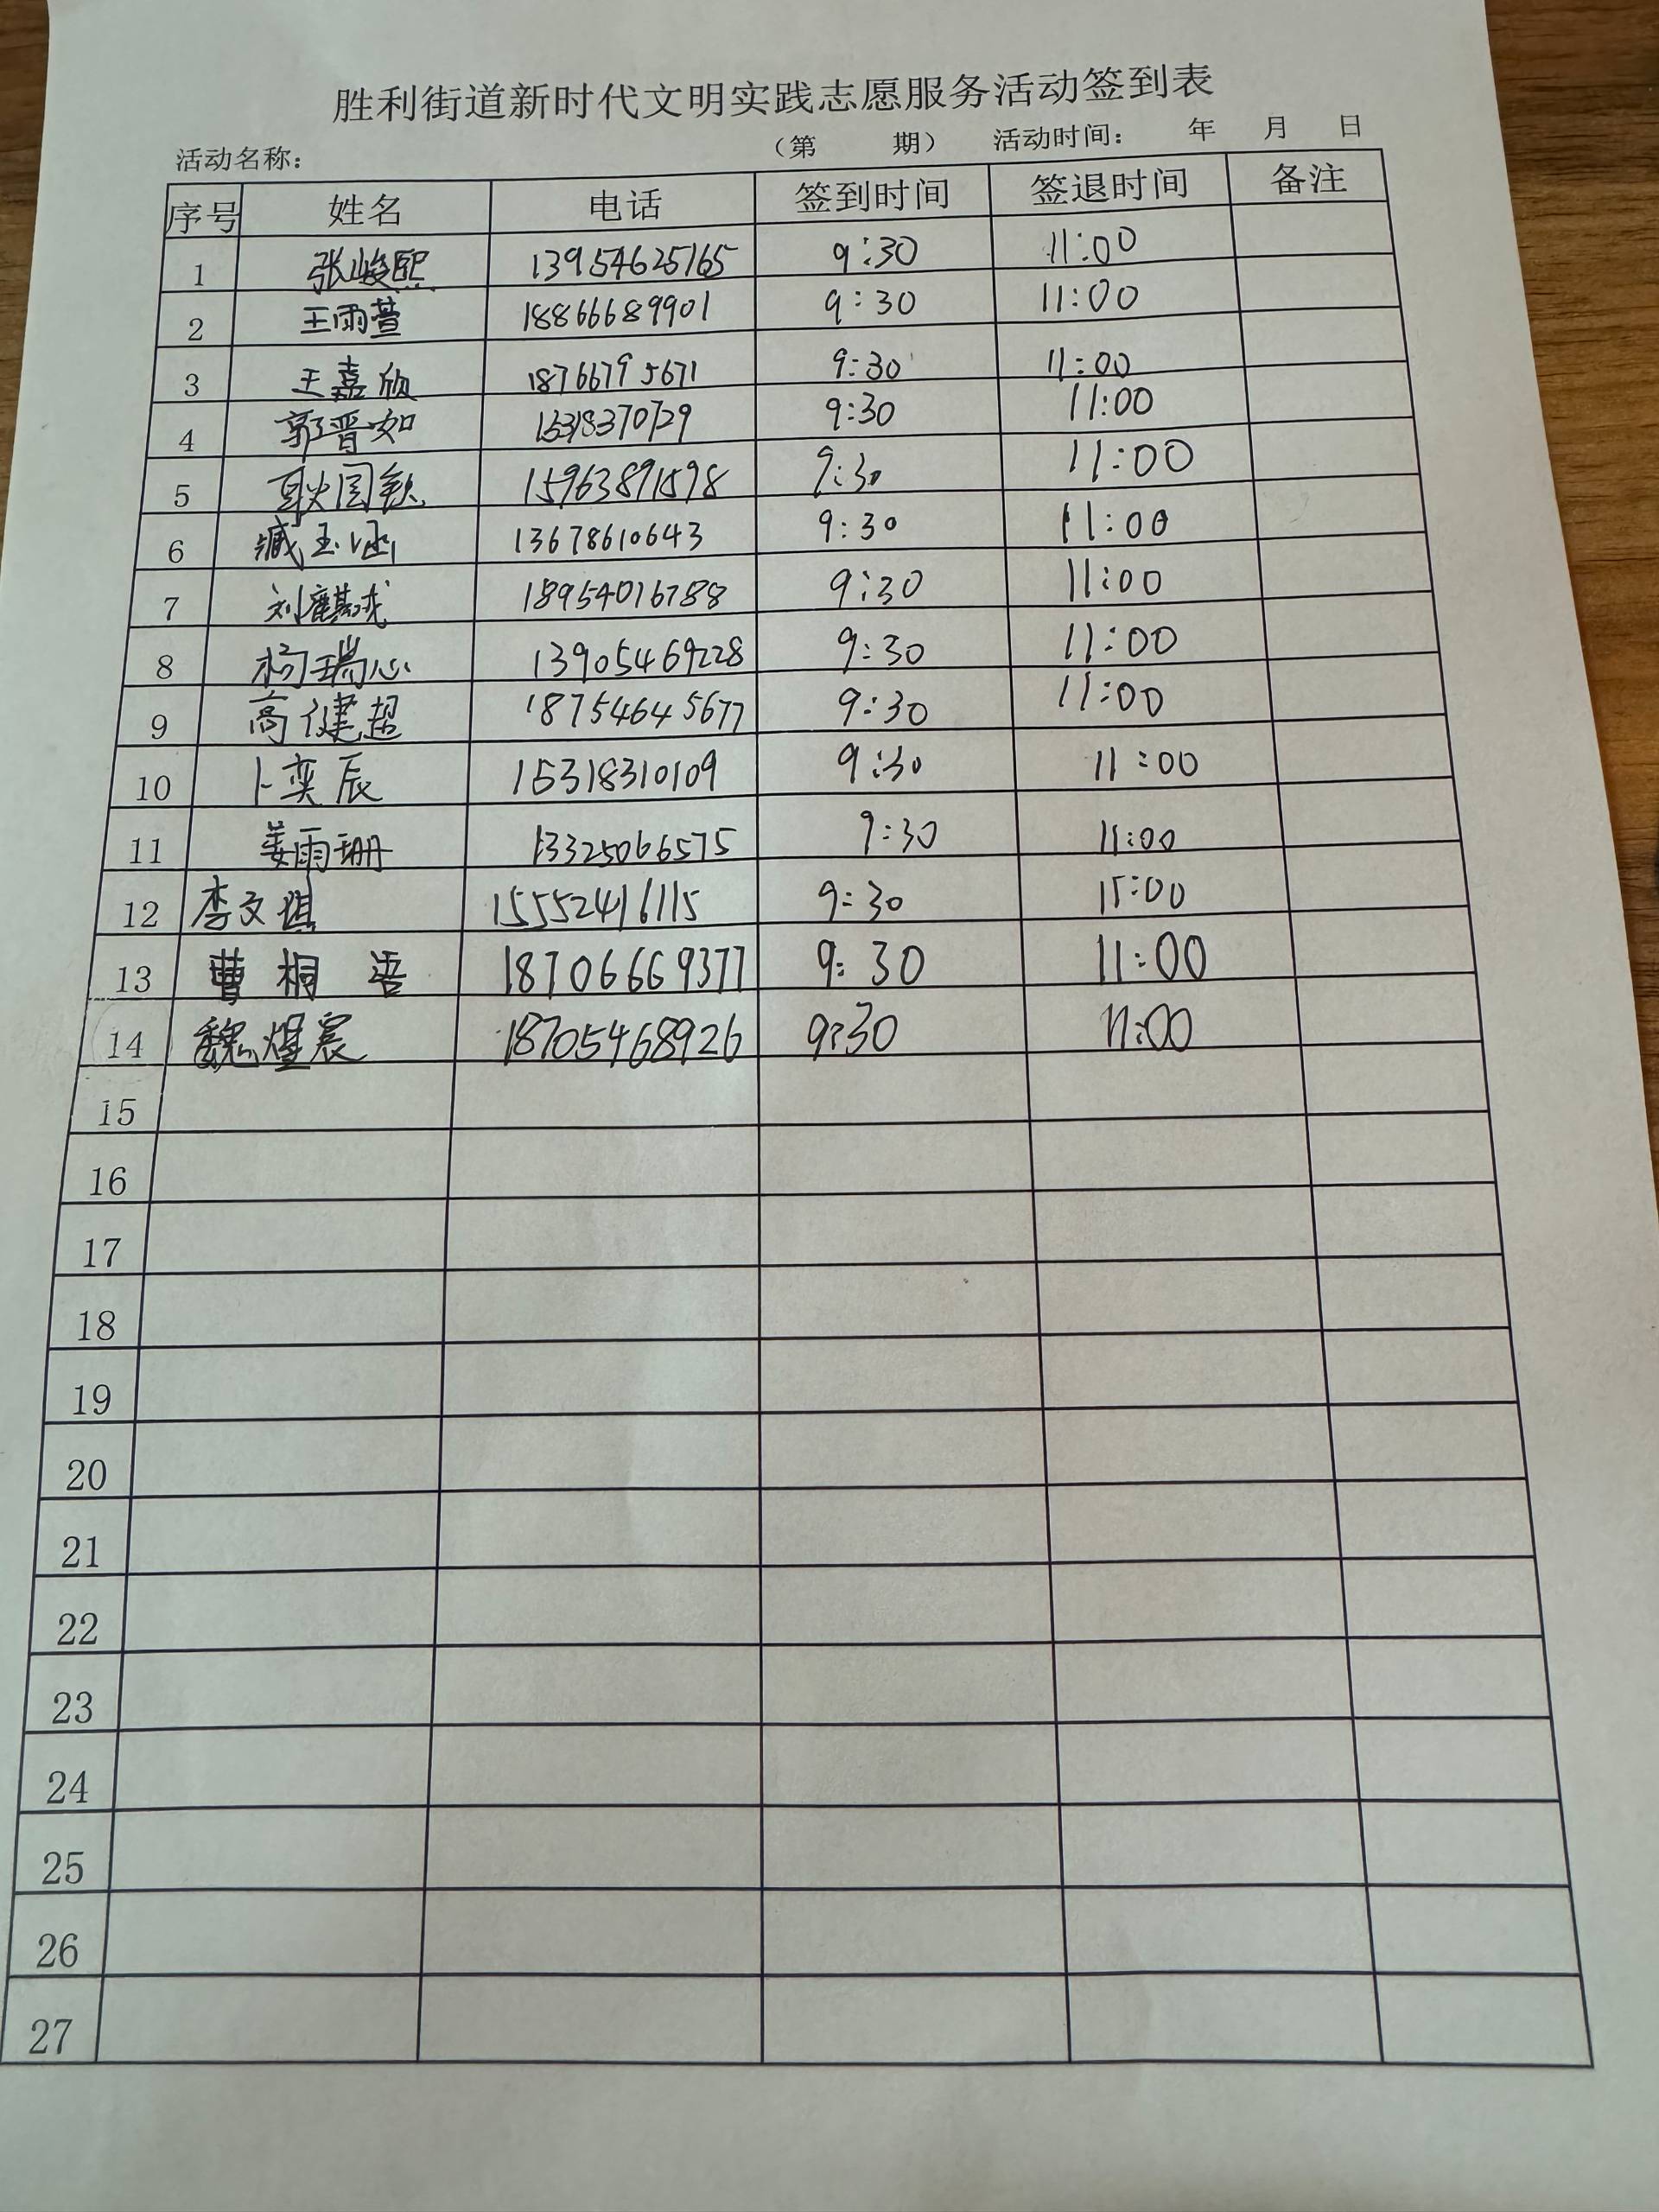 胜利街道新时代文明实践志愿服务活动签到表
活动名称： （第 期） 活动时间： 年 月 日
序号 姓名 电话 签到时间 签退时间 备注
1 张峻熙 13954625165 9:30 11:00
2 王雨萱 18866689901 9:30 11:00
3 王嘉欣 18766795671 9:30 11:00
4 郭晋如 15318370729 9:30 11:00
5 耿闰钦 15963891598 9:30 11:00
6 臧玉涵 13678610643 9:30 11:00
7 刘麒珑 18954016788 9:30 11:00
8 杨瑞心 13905469228 9:30 11:00
9 高健超 18754645677 9:30 11:00
10 卜奕辰 15318310109 9:30 11:00
11 姜雨珊 13325066575 9:30 11:00
12 李文琪 15552416115 9:30 11:00
13 曹桐语 18706669377 9:30 11:00
14 魏煜宸 18705468926 9:30 11:00
15
16
17
18
19
20
21
22
23
24
25
26
27